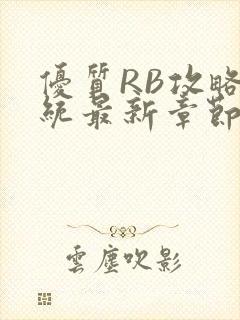 優質RB攻略
統最新章節
雲塵吹影